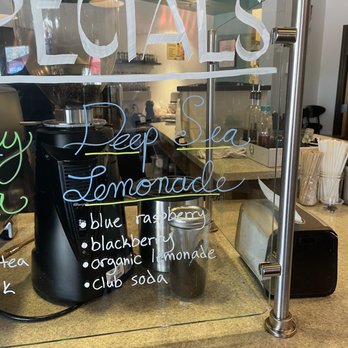 SPECIALS
Deep Sea
Lemonade
• blue raspberry
• blackberry
• organic lemonade
• club soda
tea